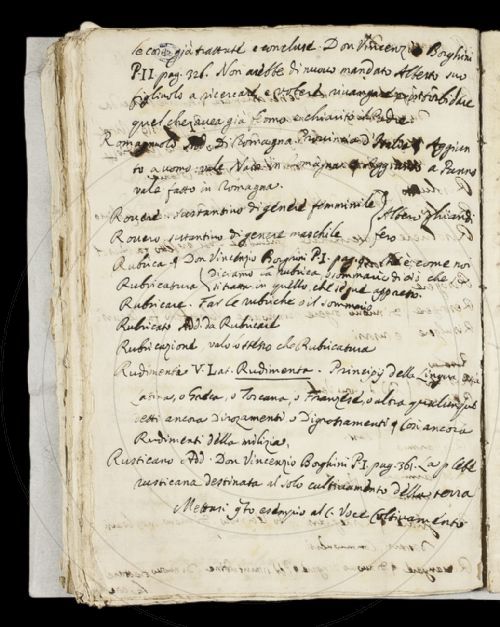 le cose già trattate e concluse. Don Vincenzio Borghini
P. II. pag. 326. Non arebbe di nuovo mandato Alberto suo
figliuolo a ricercare, e volere rivangare e intorbidare
quel che avea già fermo e chiarito il Padre.
Romagnuolo Add. Di Romagna Provincia d'Italia. Aggiun
to a uomo vale Nato in Romagna e a Panno
vale fatto in Romagna.
Rovere sustantivo di genere femminile } Albero ghiandi
Rovero sustantivo di genere maschile } fero
Rubrica e Don Vincenzio Borghini P. I. pag. che è come noi
Rubricatura { Diciamo la rubrica, o sommario di ciò che
si tratta in quello, che segue appresso.
Rubricare. Far le rubriche o il sommario
Rubricato Add. da Rubricare
Rubricazione vale lo stesso che Rubricatura
Rudimento V. Lat. Rudimenta. Principj della Lingua
Latina, o Greca, o Toscana, o Franzese, o altra qualunque
detti ancora Dirozamenti o Digrossamenti e così ancora
Rudimenti della milizia.
Rusticano Add. Don Vincenzio Borghini P. I. pag. 361. La plebe
rusticana destinata al solo cultivamento della terra
Mettasi qto esempio al C. Voce Coltivamento